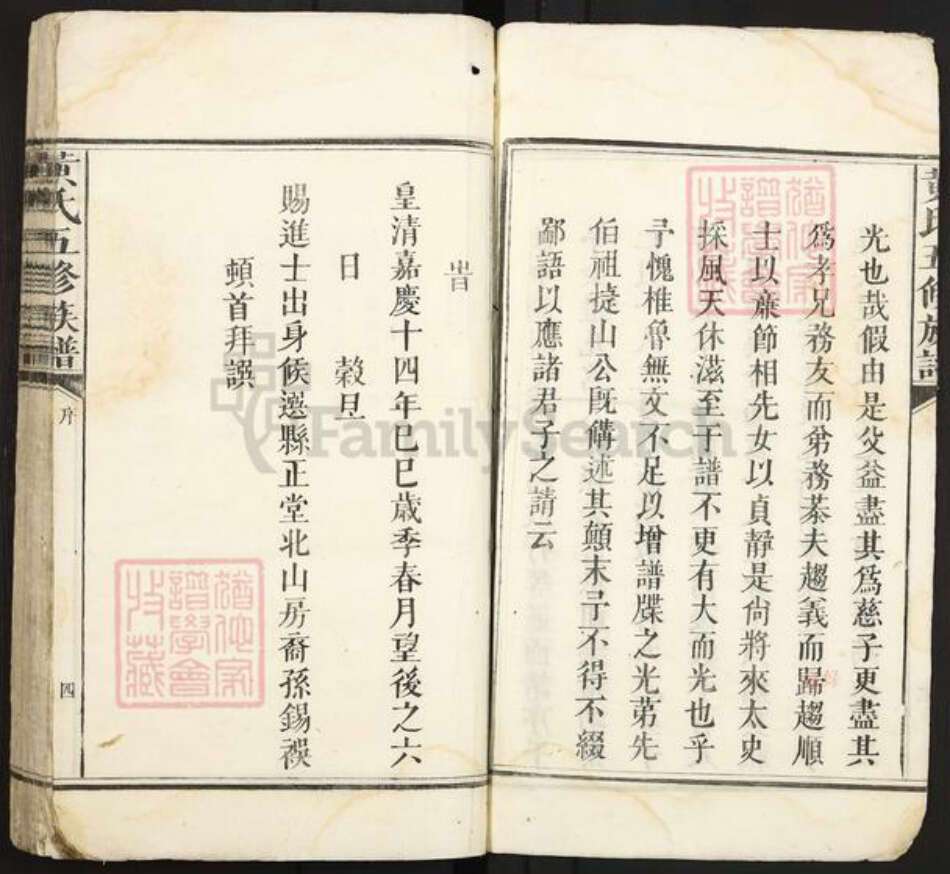 黃氏五修族譜
光也哉假由是父益盡其爲慈子更盡其
爲孝兄務友而弟務恭夫趨義而歸趨順
士以廉節相先女以貞靜是尙將來太史
採風天休滋至于譜不更有大而光也乎
予愧椎魯無文不足以增譜牒之光苐先
伯祖捷山公旣備述其顛末予不得不綴
鄙語以應諸君子之請云
旹
皇清嘉慶十四年已巳歲季春月望後之六
日 穀旦
賜進士出身候選縣正堂北山房裔孫錫禩
頓首拜譔
黃氏五修族譜
序
四
猶他家譜學會收藏
猶他家譜學會收藏
FamilySearch